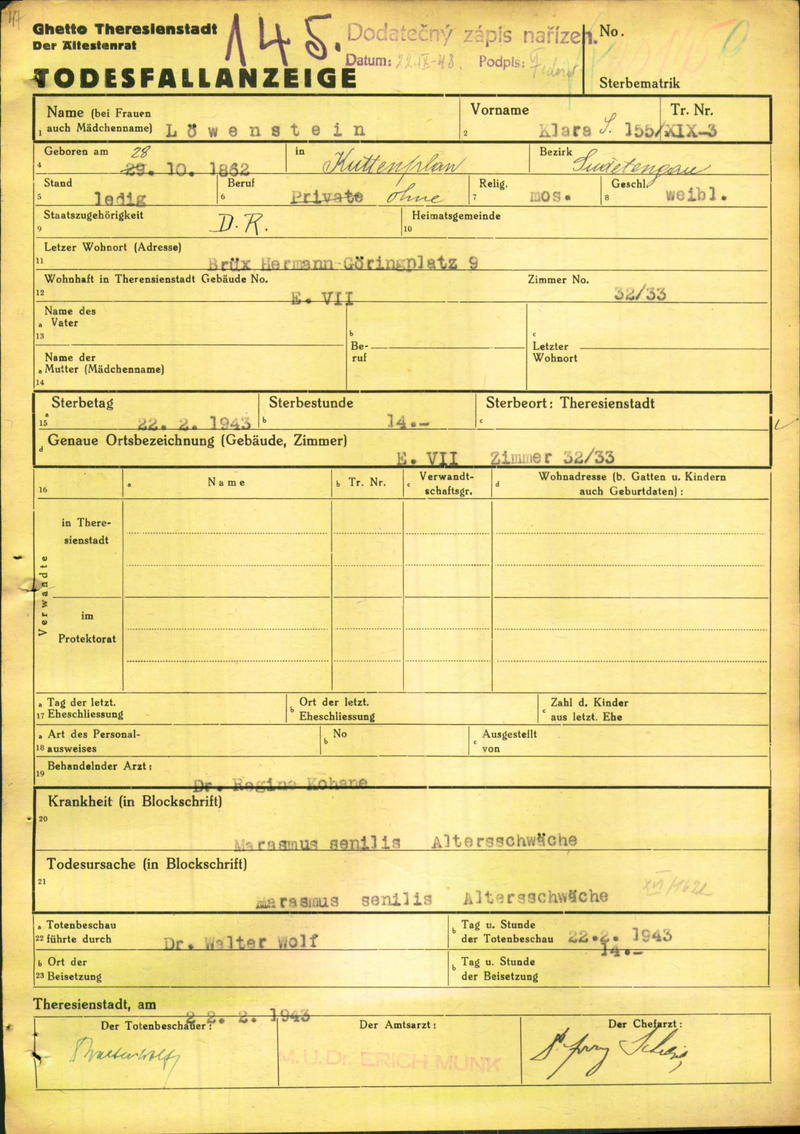 Ghetto Theresienstadt
Der Ältestenrat
145.
Dodatečný zápis nařízen.
Datum: Podpis:
TODESFALLANZEIGE
No.
Sterbematrik
Name (bei Frauen auch Mädchenname) Löwenstein
1
Vorname Klara S.
2
Tr. Nr. 155/XIX-3
4 Geboren am 28 29. 10. 1862
in Kuttenplan
Bezirk Sudetengau
5 Stand ledig
6 Beruf Private ohne
7 Relig. mos.
8 Geschl. weibl.
9 Staatszugehörigkeit D.R.
10 Heimatsgemeinde
11 Letzer Wohnort (Adresse) Brüx Hermann Göringplatz 9
12 Wohnhaft in Theresienstadt Gebäude No. E. VII
Zimmer No. 32/33
13 a Name des Vater
b Beruf
c Letzter Wohnort
14 a Name der Mutter (Mädchenname)
15 a Sterbetag 22. 2. 1943
b Sterbestunde 14.-
c Sterbeort: Theresienstadt
d Genaue Ortsbezeichnung (Gebäude, Zimmer)
E. VII Zimmer 32/33
16 a Name
b Tr. Nr.
c Verwandtschaftsgr.
d Wohnadresse (b. Gatten u. Kindern auch Geburtdaten):
Verwandte
in Theresienstadt
im Protektorat
17 a Tag der letzt. Eheschliessung
b Ort der letzt. Eheschliessung
c Zahl d. Kinder aus letzt. Ehe
18 a Art des Personalausweises
b No
c Ausgestellt von
19 Behandelnder Arzt:
Dr. Regine Kohane
20 Krankheit (in Blockschrift)
Marasmus senilis Altersschwäche
21 Todesursache (in Blockschrift)
Marasmus senilis Altersschwäche
22 a Totenbeschau führte durch Dr. Walter Wolf
b Tag u. Stunde der Totenbeschau 22.2. 1943
14.-
23 b Ort der Beisetzung
b Tag u. Stunde der Beisetzung
Theresienstadt, am 22. 2. 1943
Der Totenbeschauer:
Der Amtsarzt:
M.U.Dr. ERICH MUNK
Der Chefarzt: